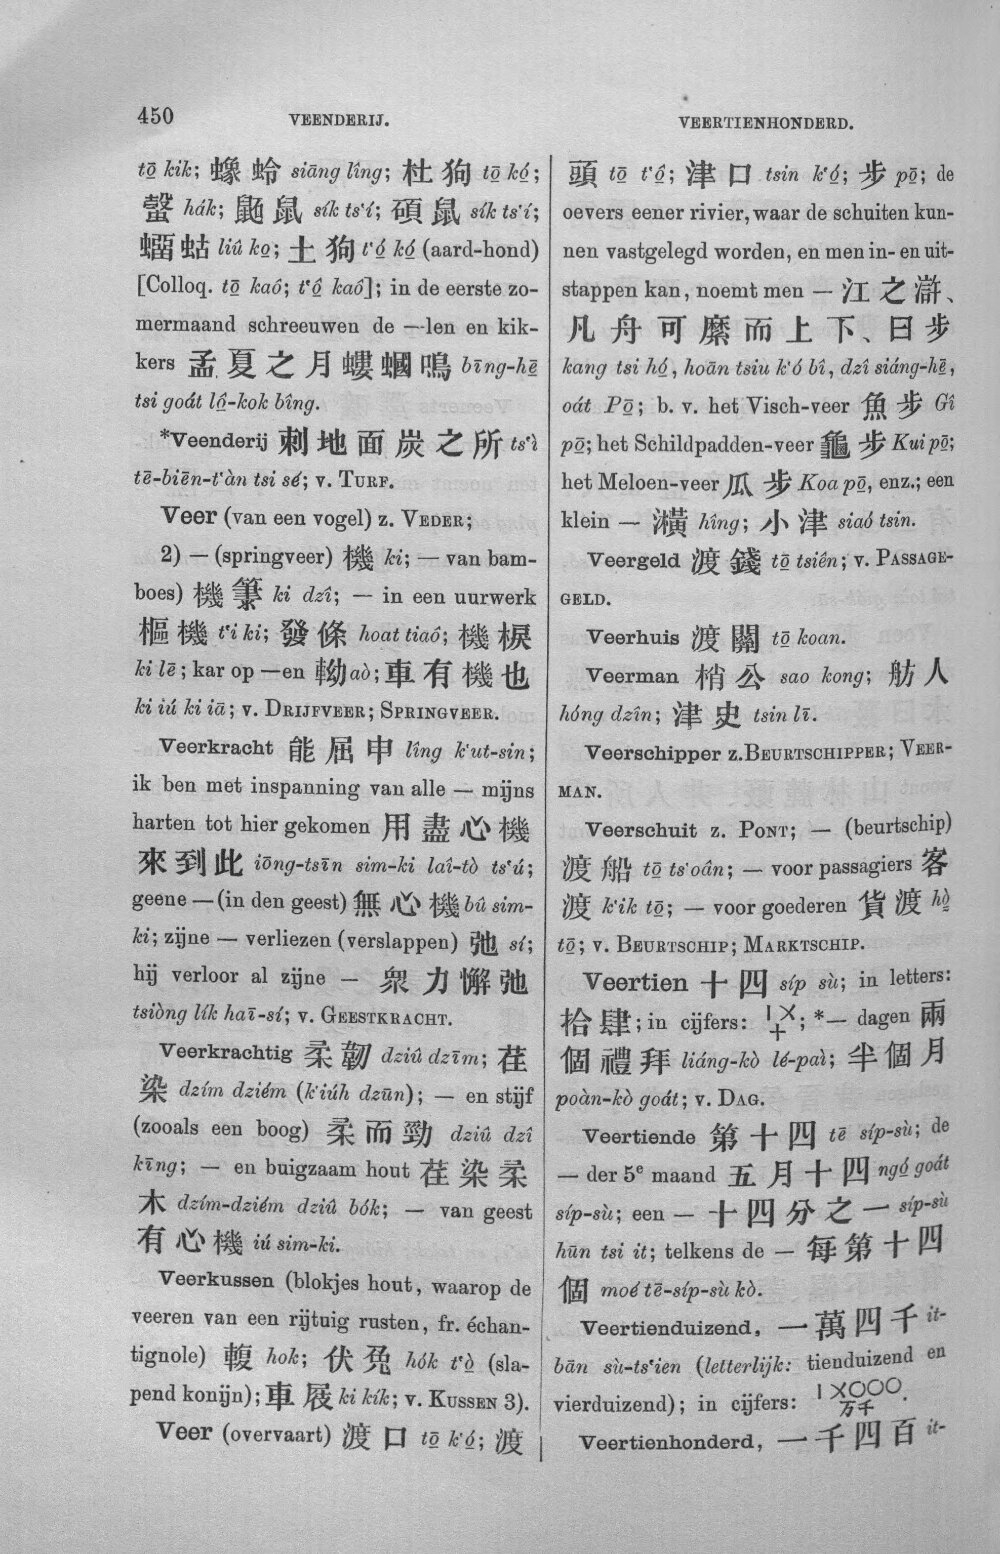 450
VEENDERIJ.
VEERTIENHONDERD.
tō̤ kik; 蟓蛉 siāng lîng; 杜狗 tō̤ kó̤;
螜 hák; 鼫鼠 sík ts‘í; 碩鼠 sík ts‘í;
蟉蛄 liû ko̤; 土狗 t‘ó̤ kó̤ (aard-hond)
[Colloq. tō̤ kaó; t‘ó̤ kaó]; in de eerste zo-
mermaand schreeuwen de —len en kik-
kers 孟夏之月螻蟈鳴 bīng-hē
tsi goát lô̤-kok bîng.
*Veenderij 刺地面炭之所 ts‘ì
tē-biēn-t‘àn tsi sé; v. TURF.
Veer (van een vogel) z. VEDER;
2) — (springveer) 機 ki; — van bam-
boes) 機箑 ki dzî; — in een uurwerk
樞機 t‘i ki; 發條 hoat tiaô; 機棙
ki lē; kar op —en 軪 aò; 車有機也
ki iú ki iā; v. DRIJFVEER; SPRINGVEER.
Veerkracht 能屈申 lîng k‘ut-sin;
ik ben met inspanning van alle — mijns
harten tot hier gekomen 用盡心機
來到此 iōng-tsīn sim-ki laî-tò ts‘ú;
geene — (in den geest) 無心機 bû sim-
ki; zijne — verliezen (verslappen) 弛 sí;
hij verloor al zijne — 衆力懈弛
tsiòng lík haī-sí; v. GEESTKRACHT.
Veerkrachtig 柔韌 dziû dzīm; 荏
染 dzím dziém (k‘iúh dzūn); — en stijf
(zooals een boog) 柔而勁 dziû dzî
kīng; — en buigzaam hout 荏染柔
木 dzím-dziém dziû bók; — van geest
有心機 iú sim-ki.
Veerkussen (blokjes hout, waarop de
veeren van een rijtuig rusten, fr. échan-
tignole) 輹 hok; 伏兔 hók t‘ò̤ (sla-
pend konijn); 車屐 ki kík; v. KUSSEN 3).
Veer (overvaart) 渡口 tō̤ k‘ó̤; 渡
頭 tō̤ t‘ô̤; 津口 tsin k‘ó̤; 步 pō̤; de
oevers eener rivier, waar de schuiten kun-
nen vastgelegd worden, en men in- en uit-
stappen kan, noemt men — 江之滸、
凡舟可縻而上下、曰步
kang tsi hó̤, hoān tsiu k‘ó bî, dzî siáng-hē,
oát Pō̤; b. v. het Visch-veer 魚步 Gî
pō̤; het Schildpadden-veer 龜步 Kui pō̤;
het Meloen-veer 瓜步 Koa pō̤, enz.; een
klein — 潢 hîng; 小津 siaó tsin.
Veergeld 渡錢 tō̤ tsiên; v. PASSAGE-
GELD.
Veerhuis 渡關 tō̤ koan.
Veerman 梢公 sao kong; 舫人
hóng dzîn; 津吏 tsin lī.
Veerschipper z. BEURTSCHIPPER; VEER-
MAN.
Veerschuit z. PONT; — (beurtschip)
渡船 tō̤ ts‘oân; — voor passagiers 客
渡 k‘ik tō̤; — voor goederen 貨渡 hò̤
tō̤; v. BEURTSCHIP; MARKTSCHIP.
Veertien 十四 síp sù; in letters:
拾肆; in cijfers: 〡〤十; *— dagen 兩
個禮拜 liáng-kò lé-paì; 半個月
poàn-kò goát; v. DAG.
Veertiende 第十四 tē síp-sù; de
— der 5e maand 五月十四 ngó̤ goát
síp-sù; een — 十四分之一 síp-sù
hūn tsi it; telkens de — 每第十四
個 moé tē-síp-sù kò.
Veertienduizend, 一萬四千 it-
bān sù-ts‘ien (letterlijk: tienduizend en
vierduizend); in cijfers: 〡〤〇〇〇万千.
Veertienhonderd, 一千四百 it-